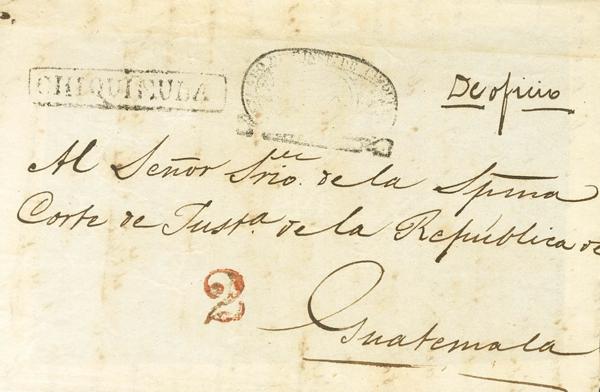 CHIQUIMULA
De oficio
Al Señor Srio. de la Spma
Corte de Just.a de la República de
2
Guatemala